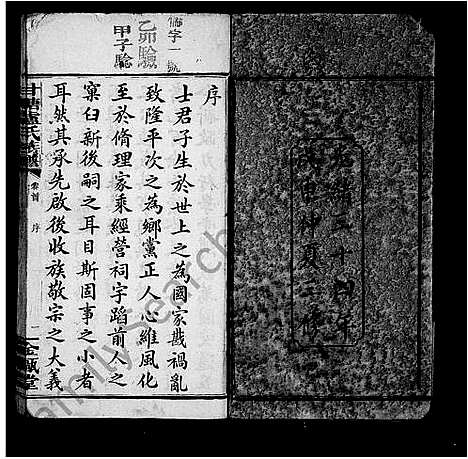 光緒三十四年
戊申仲夏三修
儒字一號
乙卯驗
甲子驗
序
士君子生於世上之為國家戡禍亂
致隆平次之為鄉黨正人心維風化
至於脩理家乘經營祠宇蹈前人之
窠臼新後嗣之耳目斯固事之小者
耳然其承先啟後收族敬宗之大義
氏族譜
卷首
序
一
堂
FamilySearch